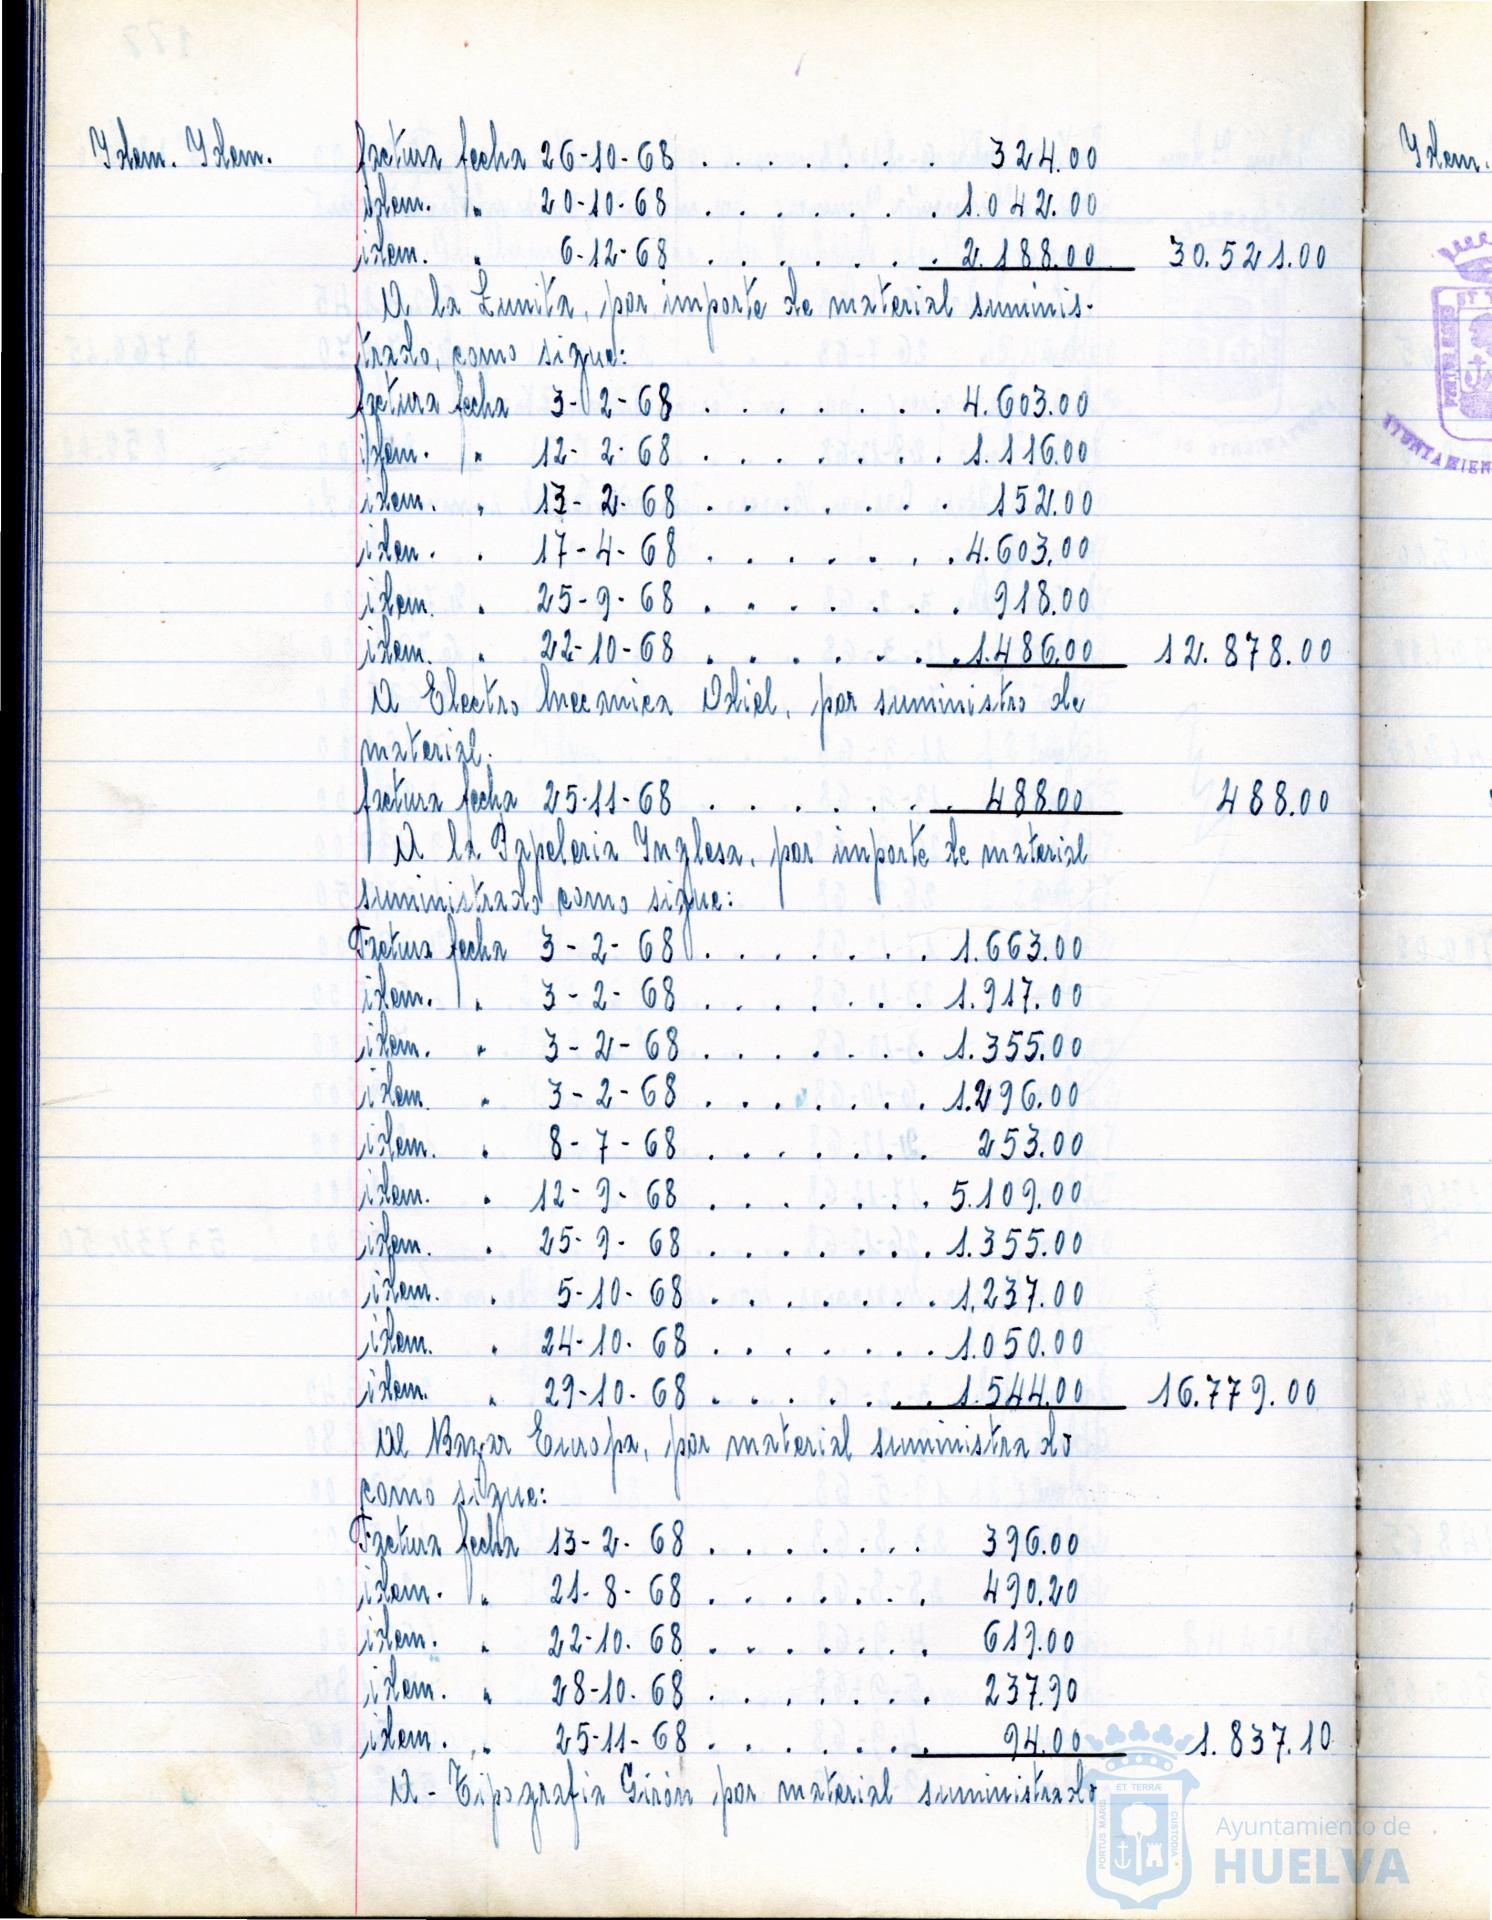 Idem. Idem. factura fecha 26-10-68 . . . . . . . 324.00
idem. " 20-10-68 . . . . . . . 1.042.00
idem. " 6-12-68 . . . . . . . 2.188.00 30.521.00
A la Lunita, por importe de material suminis-
trado, como sigue:
factura fecha 3-2-68 . . . . . . . 4.603.00
idem. " 12-2-68 . . . . . . . 1.116.00
idem. " 13-2-68 . . . . . . . 152.00
idem. " 17-4-68 . . . . . . . 4.603.00
idem. " 25-9-68 . . . . . . . 918.00
idem. " 22-10-68 . . . . . . . 1.486.00 12.878.00
A Electro Mecanica Odiel, por suministro de
material.
factura fecha 25-11-68 . . . . . . . 488.00 488.00
A la Papeleria Inglesa, por importe de material
suministrado como sigue:
Factura fecha 3-2-68 . . . . . . . 1.663.00
idem. " 3-2-68 . . . . . . . 1.917.00
idem. " 3-2-68 . . . . . . . 1.355.00
idem. " 3-2-68 . . . . . . . 1.296.00
idem. " 8-7-68 . . . . . . . 253.00
idem. " 12-9-68 . . . . . . . 5.109.00
idem. " 25-9-68 . . . . . . . 1.355.00
idem. " 5-10-68 . . . . . . . 1.237.00
idem. " 24-10-68 . . . . . . . 1.050.00
idem. " 29-10-68 . . . . . . . 1.544.00 16.779.00
Al Bazar Europa, por material suministrado
como sigue:
Factura fecha 13-2-68 . . . . . . . 396.00
idem. " 21-8-68 . . . . . . . 490.20
idem. " 22-10-68 . . . . . . . 619.00
idem. " 28-10-68 . . . . . . . 237.90
idem. " 25-11-68 . . . . . . . 94.00 1.837.10
A - Tipografia Girón por material suministrado
Idem.
ET TERRÆ
PORTUS MARIS
CUSTODIA
Ayuntamiento de
HUELVA